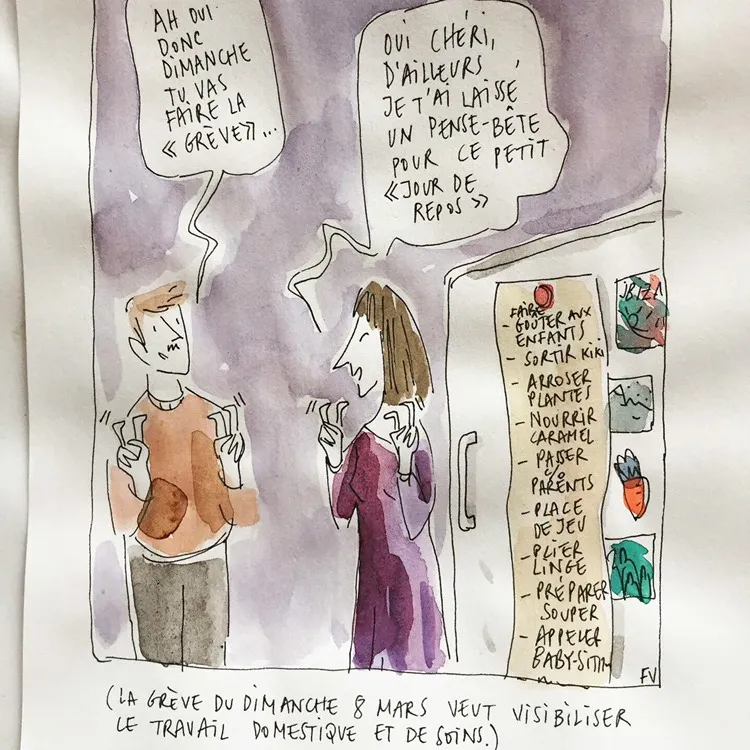 AH OUI
DONC
DIMANCHE
TU VAS
FAIRE LA
« GRÈVE »...
OUI CHÉRI,
D'AILLEURS
JE T'AI LAISSÉ
UN PENSE-BÊTE
POUR CE PETIT
« JOUR DE
REPOS »
FAIRE
- GOÛTER AUX
ENFANTS
- SORTIR KIKI
- ARROSER
PLANTES
- NOURRIR
CARAMEL
- PASSER
c/o
PARENTS
- PLACE
DE JEU
- PLIER
LINGE
- PRÉPARER
SOUPER
- APPELER
BABY-SITTI
IBIZA
FV
(LA GRÈVE DU DIMANCHE 8 MARS VEUT VISIBILISER
LE TRAVAIL DOMESTIQUE ET DE SOINS.)